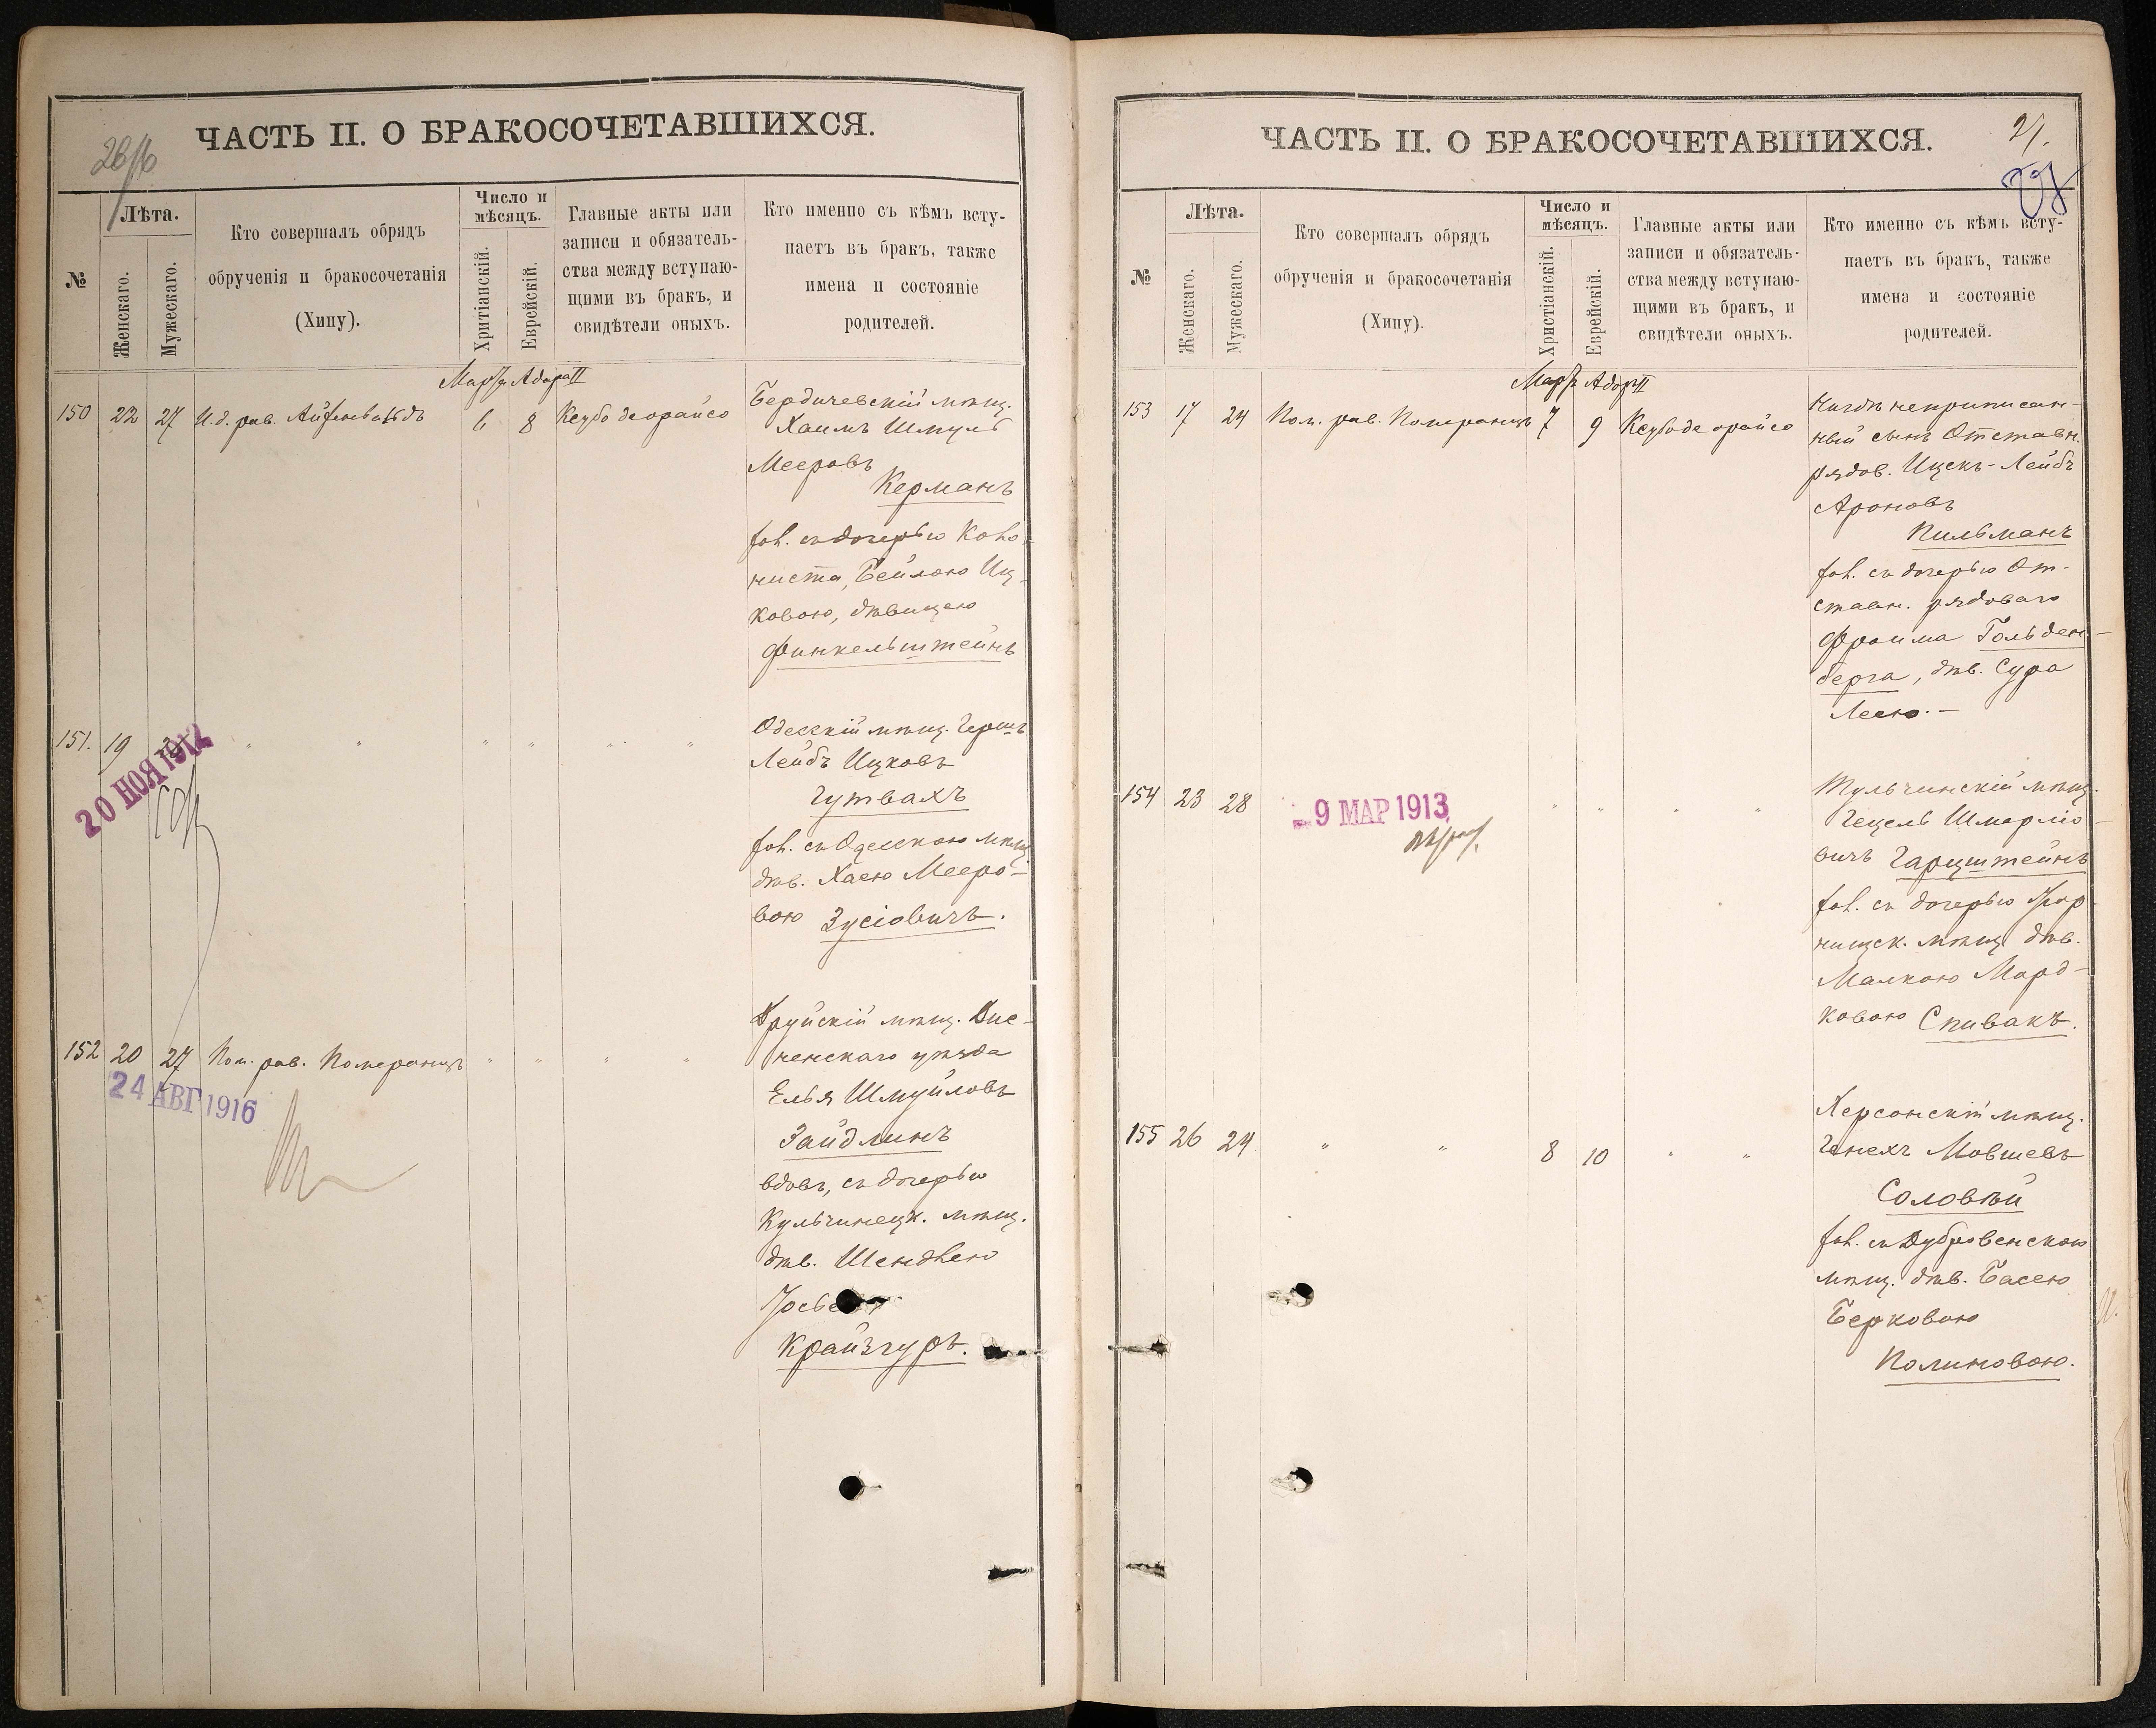 26/об
ЧАСТЬ II. О БРАКОСОЧЕТАВШИХСЯ.
№
Лѣта.
Женскаго.
Мужескаго.
Кто совершалъ обрядъ
обрученія и бракосочетанія
(Хипу).
Число и
мѣсяцъ.
Хритіанскій.
Еврейскій.
Главные акты или
записи и обязатель-
ства между вступаю-
щими въ бракъ, и
свидѣтели оныхъ.
Кто именно съ кѣмъ всту-
паетъ въ бракъ, также
имена и состояніе
родителей.
Марта Адара II
150 22 27 И. д. рав. Айзенвальдъ 6 8 Ксубо деорайсо
Бердичевскій мѣщ.
Хаимъ Шмуль
Мееровъ
Керманъ
хол. съ дочерью Коло-
ниста, Бейлою Иц-
ковою, дѣвицею
Финкельштейнъ
151. 19 " " " " " "
20 НОЯ 1912
Одесскій мѣщ. Гершъ
Лейбъ Ицковъ
Гутвахъ
хол. съ Одесскою мѣщ.
дѣв. Хаею Мееро-
вою Зусіовичъ.
152 20 27 Пом. рав. Померанцъ " " " "
24 АВГ 1916
Друйскій мѣщ. Дис-
ненскаго уѣзда
Елья Шмуйловъ
Зайдлинъ
вдовъ, съ дочерью
Кульчинецк. мѣщ.
дѣв. Шендлею
Крайзгуръ.
27.
ЧАСТЬ II. О БРАКОСОЧЕТАВШИХСЯ.
№
Лѣта.
Женскаго.
Мужескаго.
Кто совершалъ обрядъ
обрученія и бракосочетанія
(Хипу).
Число и
мѣсяцъ.
Христіанскій.
Еврейскій.
Главные акты или
записи и обязатель-
ства между вступаю-
щими въ бракъ, и
свидѣтели оныхъ.
Кто именно съ кѣмъ всту-
паетъ въ бракъ, также
имена и состояніе
родителей.
Марта Адара II
153 17 24 Пом. рав. Померанцъ 7 9 Ксубо де орайсо
Нигдѣ неприписан-
ный сынъ Отставн.
рядов. Ицекъ-Лейбъ
Ароновъ
Пильманъ
хол. съ дочерью От-
ставн. рядоваго
Фроима Гольден-
берга, дѣв. Сура
Леею.-
154 23 28 " " " "
9 МАР 1913
Тульчинскій мѣщ.
Гецель Шмаріо-
вичъ Гарцштейнъ
хол. съ дочерью
мѣщ. дѣв.
Малкою Морд-
ковою Спивакъ.
155 26 24 " " 8 10 " "
Херсонскій мѣщ.
Генехъ Мовшевъ
Соловѣй
хол. съ Дубровенскою
мѣщ. дѣв. Басею
Берковою
Полиновою.